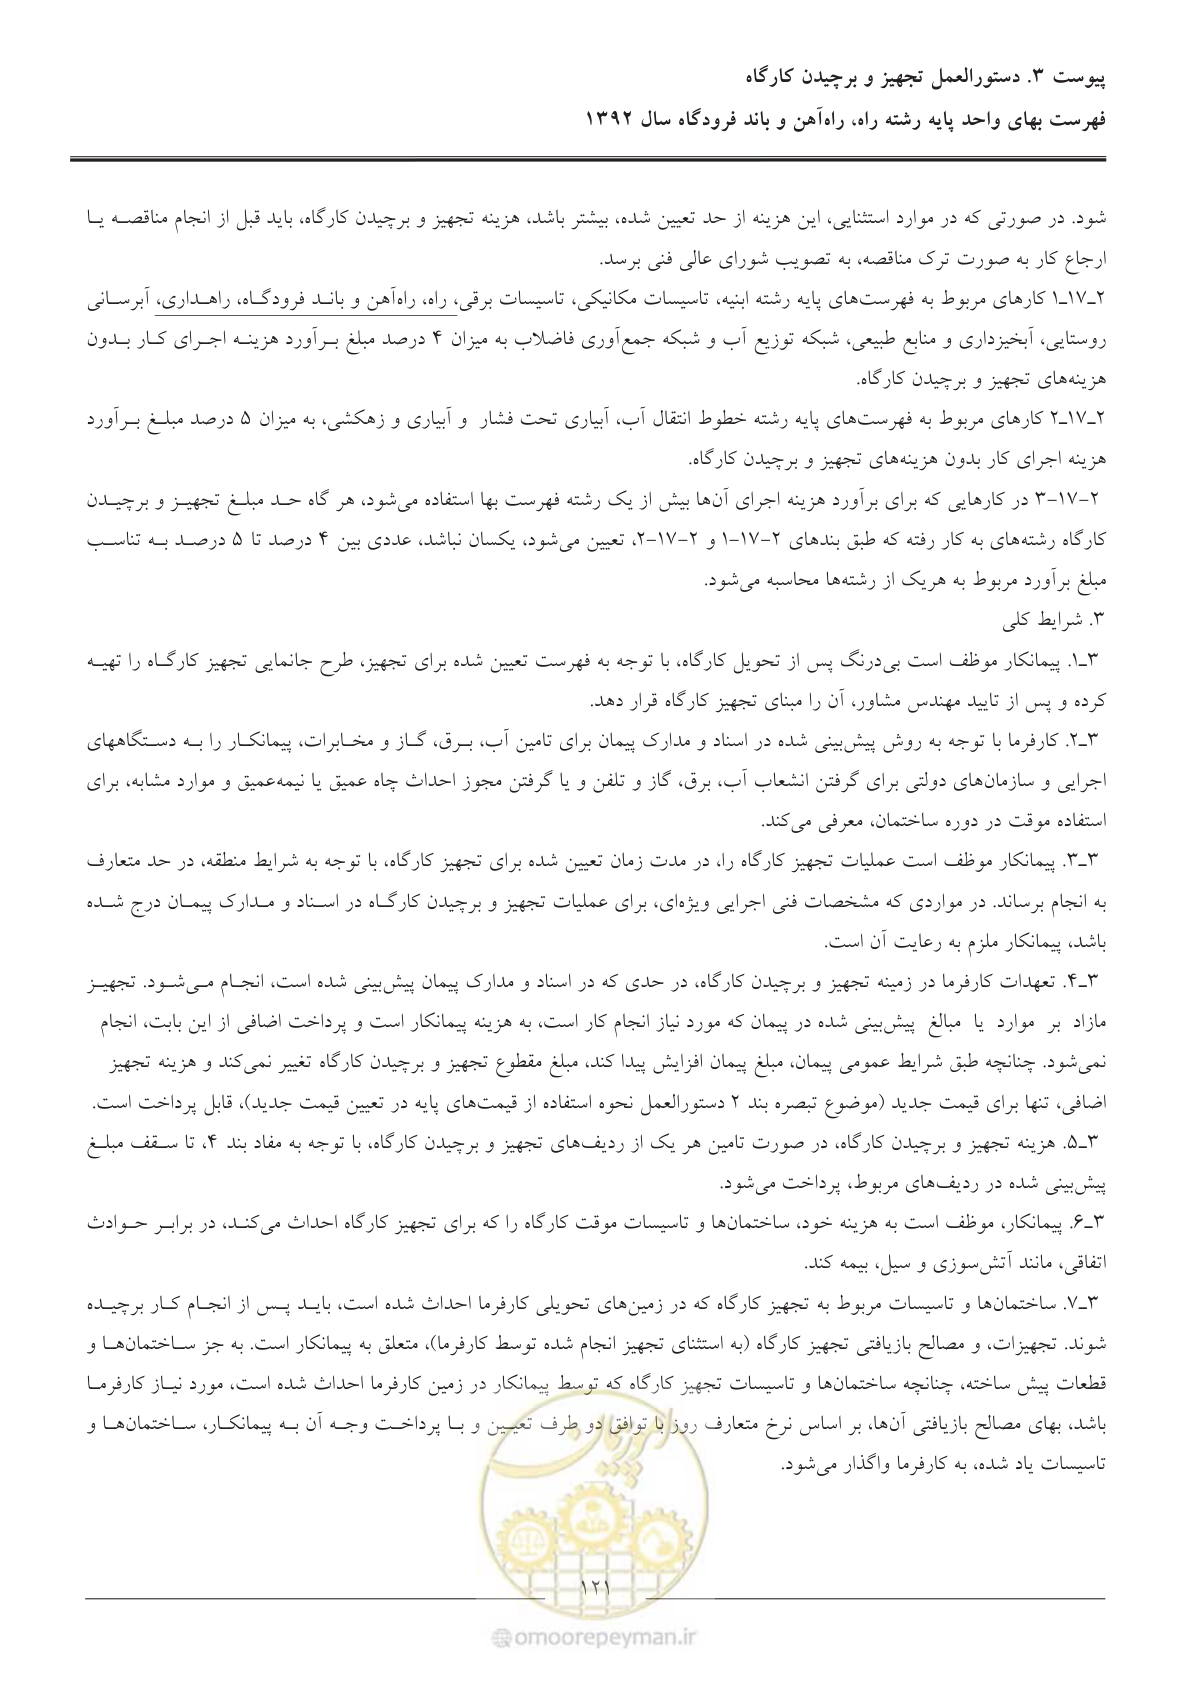 پیوست ۳. دستورالعمل تجهیز و برچیدن کارگاه
فهرست بهای واحد پایه رشته راه، راه‌آهن و باند فرودگاه سال ۱۳۹۲
شود. در صورتی که در موارد استثنایی، این هزینه از حد تعیین شده، بیشتر باشد، هزینه تجهیز و برچیدن کارگاه، باید قبل از انجام مناقصه یا
ارجاع کار به صورت ترک مناقصه، به تصویب شورای عالی فنی برسد.
۲ـ۱۷ـ۱ کارهای مربوط به فهرست‌های پایه رشته ابنیه، تاسیسات مکانیکی، تاسیسات برقی، راه، راه‌آهن و باند فرودگاه، راهداری، آبرسانی
روستایی، آبخیزداری و منابع طبیعی، شبکه توزیع آب و شبکه جمع‌آوری فاضلاب به میزان ۴ درصد مبلغ برآورد هزینه اجرای کار بدون
هزینه‌های تجهیز و برچیدن کارگاه.
۲ـ۱۷ـ۲ کارهای مربوط به فهرست‌های پایه رشته خطوط انتقال آب، آبیاری تحت فشار و آبیاری و زهکشی، به میزان ۵ درصد مبلغ برآورد
هزینه اجرای کار بدون هزینه‌های تجهیز و برچیدن کارگاه.
۲-۱۷-۳ در کارهایی که برای برآورد هزینه اجرای آن‌ها بیش از یک رشته فهرست بها استفاده می‌شود، هر گاه حد مبلغ تجهیز و برچیدن
کارگاه رشته‌های به کار رفته که طبق بندهای ۲-۱۷-۱ و ۲-۱۷-۲، تعیین می‌شود، یکسان نباشد، عددی بین ۴ درصد تا ۵ درصد به تناسب
مبلغ برآورد مربوط به هریک از رشته‌ها محاسبه می‌شود.
۳. شرایط کلی
۳ـ۱. پیمانکار موظف است بی‌درنگ پس از تحویل کارگاه، با توجه به فهرست تعیین شده برای تجهیز، طرح جانمایی تجهیز کارگاه را تهیه
کرده و پس از تایید مهندس مشاور، آن را مبنای تجهیز کارگاه قرار دهد.
۳ـ۲. کارفرما با توجه به روش پیش‌بینی شده در اسناد و مدارک پیمان برای تامین آب، برق، گاز و مخابرات، پیمانکار را به دستگاههای
اجرایی و سازمان‌های دولتی برای گرفتن انشعاب آب، برق، گاز و تلفن و یا گرفتن مجوز احداث چاه عمیق یا نیمه‌عمیق و موارد مشابه، برای
استفاده موقت در دوره ساختمان، معرفی می‌کند.
۳ـ۳. پیمانکار موظف است عملیات تجهیز کارگاه را، در مدت زمان تعیین شده برای تجهیز کارگاه، با توجه به شرایط منطقه، در حد متعارف
به انجام برساند. در مواردی که مشخصات فنی اجرایی ویژه‌ای، برای عملیات تجهیز و برچیدن کارگاه در اسناد و مدارک پیمان درج شده
باشد، پیمانکار ملزم به رعایت آن است.
۳ـ۴. تعهدات کارفرما در زمینه تجهیز و برچیدن کارگاه، در حدی که در اسناد و مدارک پیمان پیش‌بینی شده است، انجام می‌شود. تجهیز
مازاد بر موارد یا مبالغ پیش‌بینی شده در پیمان که مورد نیاز انجام کار است، به هزینه پیمانکار است و پرداخت اضافی از این بابت، انجام
نمی‌شود. چنانچه طبق شرایط عمومی پیمان، مبلغ پیمان افزایش پیدا کند، مبلغ مقطوع تجهیز و برچیدن کارگاه تغییر نمی‌کند و هزینه تجهیز
اضافی، تنها برای قیمت جدید (موضوع تبصره بند ۲ دستورالعمل نحوه استفاده از قیمت‌های پایه در تعیین قیمت جدید)، قابل پرداخت است.
۳ـ۵. هزینه تجهیز و برچیدن کارگاه، در صورت تامین هر یک از ردیف‌های تجهیز و برچیدن کارگاه، با توجه به مفاد بند ۴، تا سقف مبلغ
پیش‌بینی شده در ردیف‌های مربوط، پرداخت می‌شود.
۳ـ۶. پیمانکار، موظف است به هزینه خود، ساختمان‌ها و تاسیسات موقت کارگاه را که برای تجهیز کارگاه احداث می‌کند، در برابر حوادث
اتفاقی، مانند آتش‌سوزی و سیل، بیمه کند.
۳ـ۷. ساختمان‌ها و تاسیسات مربوط به تجهیز کارگاه که در زمین‌های تحویلی کارفرما احداث شده است، باید پس از انجام کار برچیده
شوند. تجهیزات، و مصالح بازیافتی تجهیز کارگاه (به استثنای تجهیز انجام شده توسط کارفرما)، متعلق به پیمانکار است. به جز ساختمان‌ها و
قطعات پیش ساخته، چنانچه ساختمان‌ها و تاسیسات تجهیز کارگاه که توسط پیمانکار در زمین کارفرما احداث شده است، مورد نیاز کارفرما
باشد، بهای مصالح بازیافتی آن‌ها، بر اساس نرخ متعارف روز با توافق دو طرف تعیین و با پرداخت وجه آن به پیمانکار، ساختمان‌ها و
تاسیسات یاد شده، به کارفرما واگذار می‌شود.
امور پیمان
۱۲۱
@omoorepeyman.ir